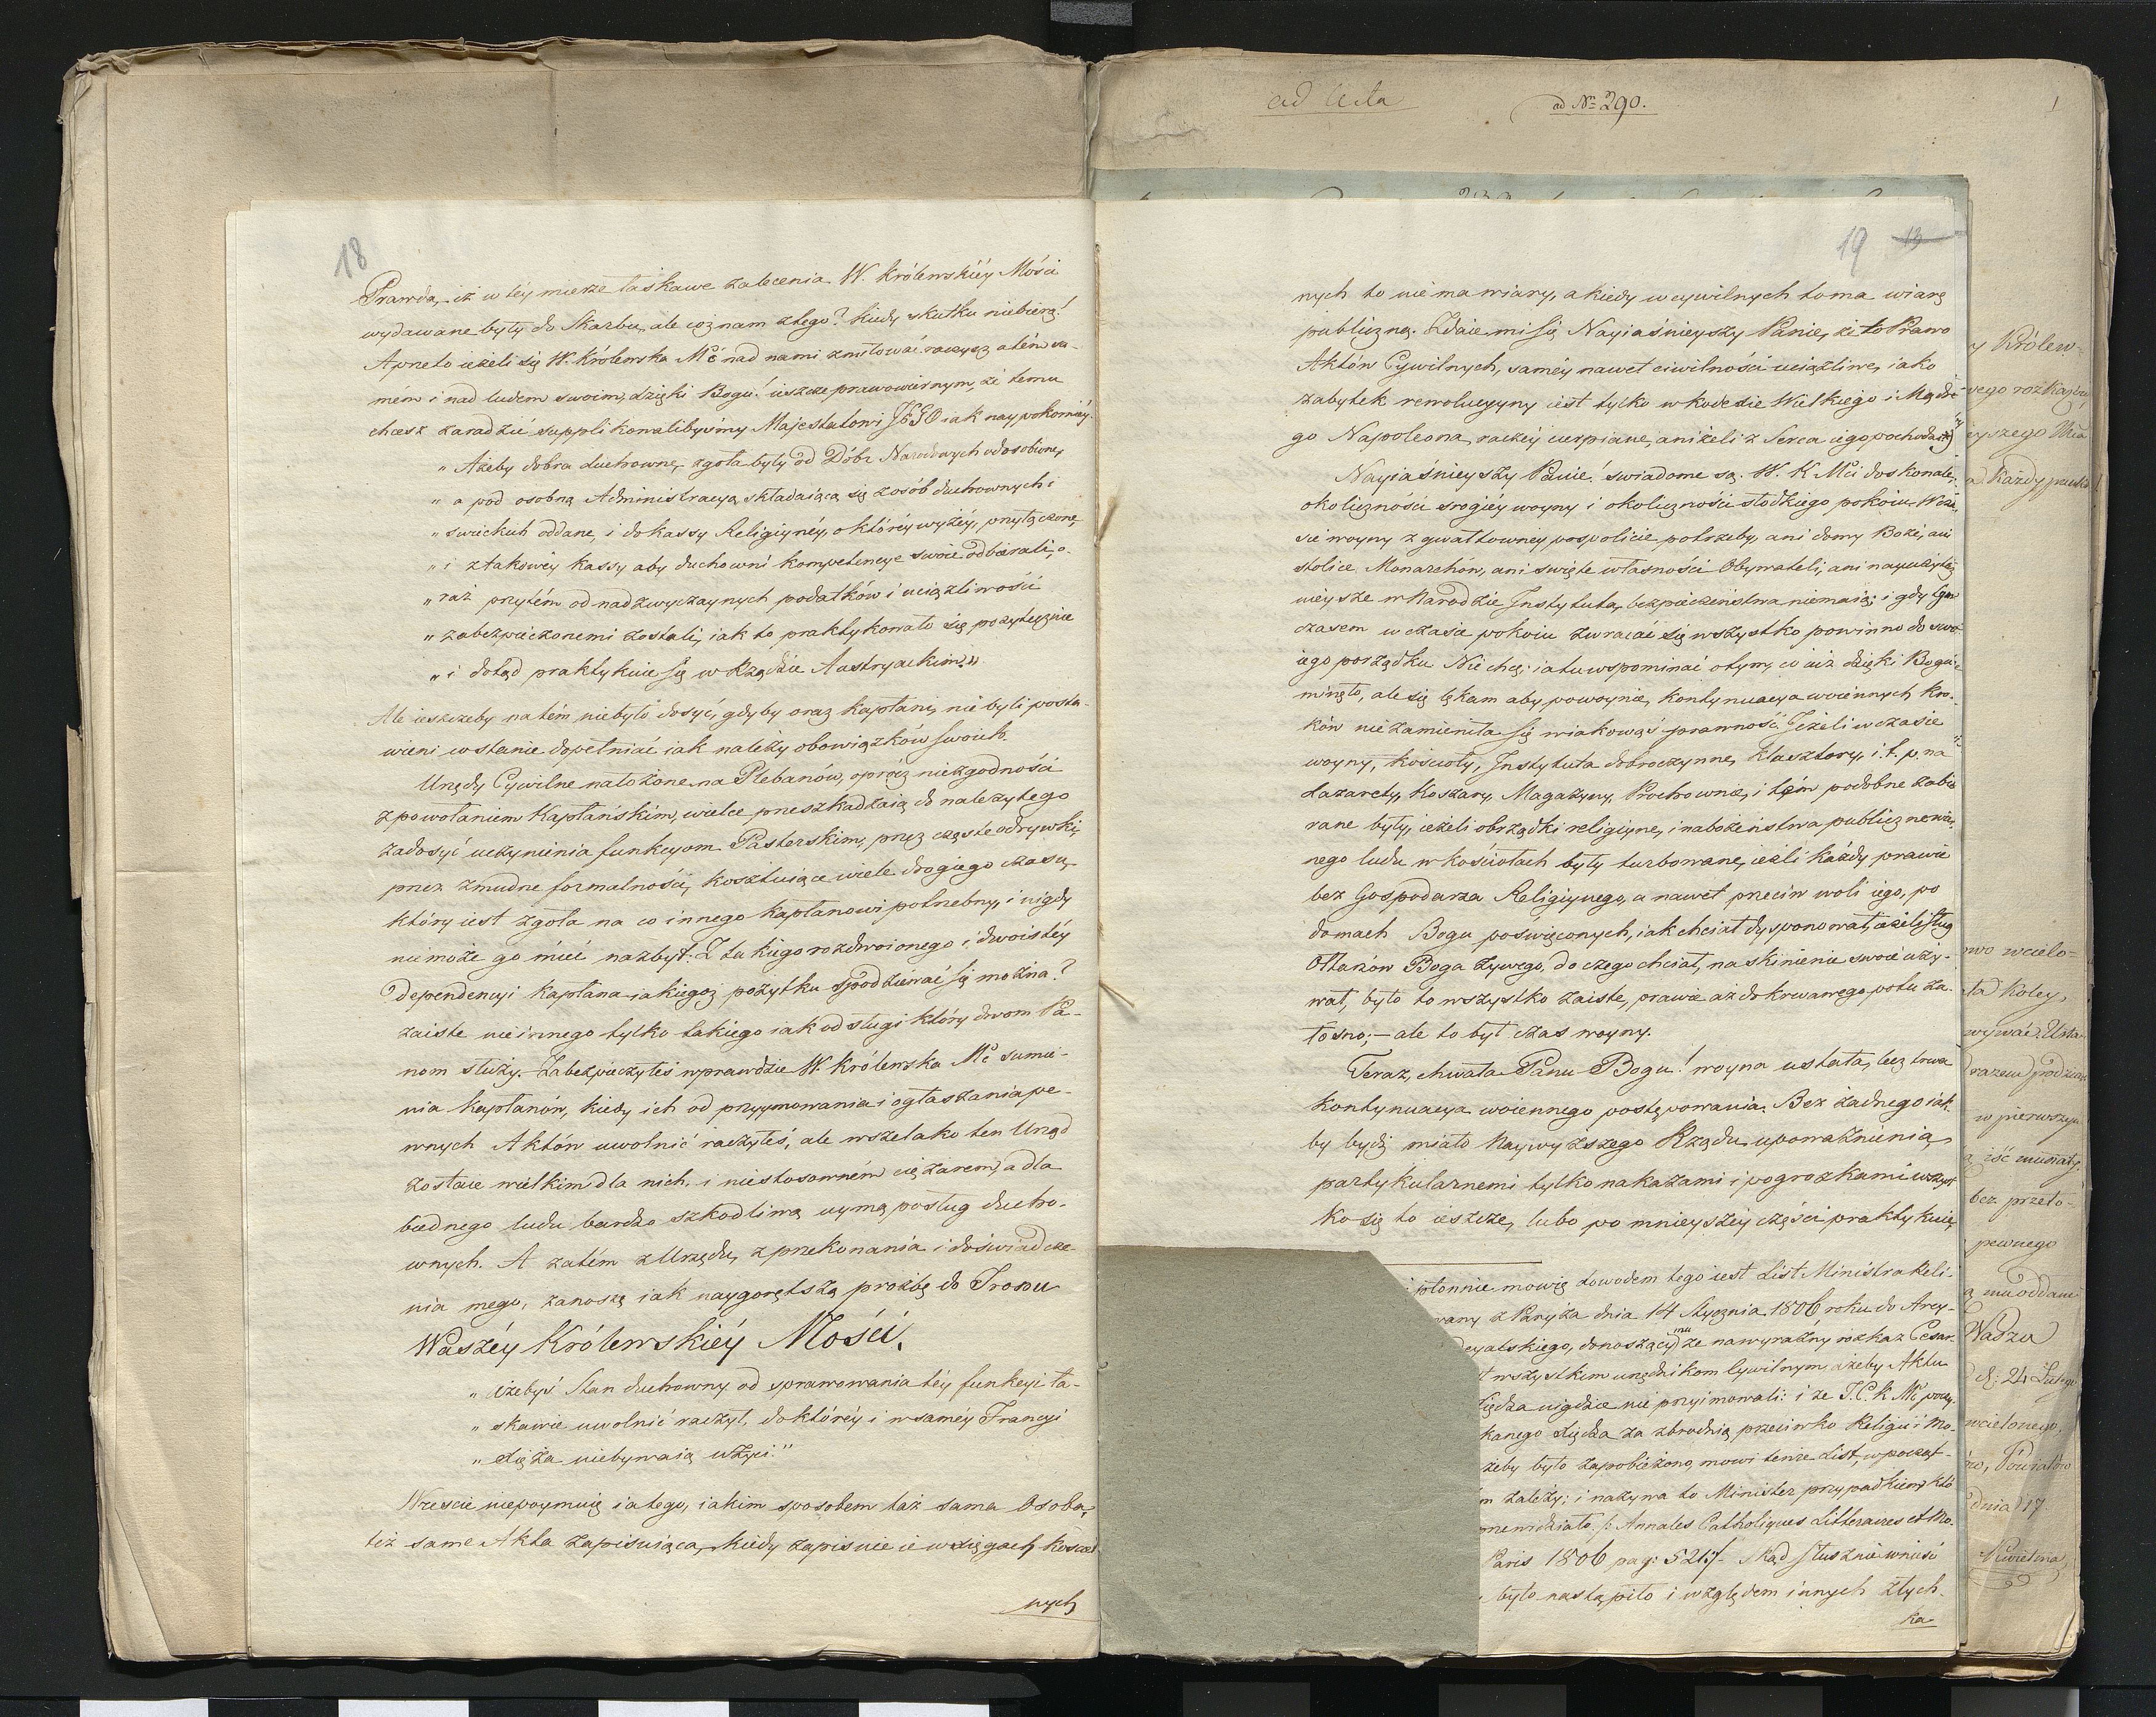 18
Prawda, iż w tey mierze łaskawe zalecenia W. Królewskiey Mości
wydawane były do Skarbu, ale coż nam z tego? kiedy skutku niebiorą!
A przeto ieżeli się W. Królewska Mć nad nami zmiłować raczysz a tém sa-
mém i nad ludem swoim, dzięki Bogu! ieszcze prawowiernym, że temu
chcesz zaradzić supplikowalibyśmy Majestatowi JEGO iak naypokorniey.
„ Ażeby dobra duchowne, zgoła były od Dóbr Narodowych udosobione,
„ a pod osobną Administracyą składaiącą się z osób duchownych i
„ swieckich oddane, i do kassy Religiyney, o którey wyżéy, przyłączone,
„ i z takowéy kassy aby duchowni kompetencye swoie odbierali, o-
„ raz przytém od nadzwyczaynych podatków i uciążliwości
„ zabezpieczonemi zostali, iak to praktykowało się pożytecznie
„ i dotąd praktykuie się w Rządzie Austryackim."
Ale ieszczeby na tém niebyło dosyć, gdyby oraz kapłani, nie byli posta-
wieni w stanie dopełniać iak należy obowiązków swoich.
Urzędy Cywilne nałożone na Plebanów, oprócz niezgodności
z powołaniem Kapłańskim, wielce przeszkadzaią do należytego
zadosyć uczynienia funkcyom Pasterskim, przez częste odrywki,
przez żmudne formalności, kosztuiące wiele drogiego czasu,
który iest zgoła na co innego kapłanowi potrzebny, i nigdy
nie może go mieć nazbyt. Z takiego rozdwoionego i dwoistéy
dependencyi kapłana iakiegoż pożytku spodziewać się można?
zaiste nie innego tylko takiego iak od sługi który dwom Pa-
nom służy. Zabezpieczyłeś wprawdzie W. Królewska Mć sumie-
nia kapłanów, kiedy ich od przyymowania i ogłaszania pe-
wnych Aktów uwolnić raczyłeś, ale wszelako ten Urząd
zostaie wielkim dla nich i niestosowném ciężarem, a dla
biednego ludu bardzo szkodliwą uymą posług ducho-
wnych. A zatém z Urzędu, z przekonania i doświadcze-
nia mego, zanoszę iak naygorętszą prożbę do Tronu
Waszéy Królewskiéy Mości,
„ iżebyś Stan duchowny od sprawowania téy funkcyi ła-
„ skawie uwolnić raczył, do któréy i w saméy Francyi
„ Xięża niebywaią użyci."
Wreście niepoymuię ia tego, iakim sposobem taż sama Osoba,
też same Akta zapisuiąca, kiedy zapisuie ie w xięgach kościel
nych
ad Acta
ad Nr 290.
1
19 13
nych to nie ma wiary, a kiedy w cywilnych to ma wiarę
publiczną. Zdaie mi się Nayiaśnieyszy Panie, że to Prawo
Aktów Cywilnych, saméy nawet ciwilności uciążliwe, iako
zabytek rewolucyyny iest tylko w kodexie Wielkiego i Mądre-
go Napoleona, raczéy cierpiane, aniżeli z Serca iego pochodzące
Nayiaśnieyszy Panie! świadome są W. K Mci doskonale,
okoliczności srogiéy woyny i okoliczności słodkiego pokoiu. W cza-
sie woyny z gwałtowney pospolicie potrzeby, ani domy Boże, ani
stolice Monarchów, ani święte własności Obywateli, ani nayużytecz
nieysze w Narodzie Instytuta, bezpieczeństwa niemaią; i gdy tym
czasem w czasie pokoiu zwracać się wszystko powinno do swo-
iego porządku. Nie chcę ia tu wspominać o tym, co iuż dzięki Bogu
minęło, ale się lękam aby po woynie, kontynuacya woiennych kro-
ków nie zamieniła się w iakowąś prawność. Jeżeli w czasie
woyny, kościoły, Instytuta dobroczynne, klasztory, i. t. p. na
Lazarety, Koszary, Magazyny, Prochownie, i tém podobne zabie
rane były, ieżeli obrządki religiyne, i nabożeństwa publiczne wier-
nego ludu w kościołach były turbowane, ieżli każdy prawie
bez Gospodarza Religiynego, a nawet przeciw woli iego, po
domach Bogu poswięconych, iak chciał dysponował, ieżeli sług
Ołtarzów Boga żywego, do czego chciał, na skinienie swoie uży-
wał, było to wszystko zaiste, prawie aż do krwawego potu ża-
łosno; – ale to był czas woyny.
Teraz, chwała Panu Bogu! woyna ustała, lecz trwa
kontynuacya woiennego postępowania. Bez żadnego iak-
by bydź miało Naywyższego Rządu upoważnienia,
partykularnemi tylko nakazami i pogrozkami wszyst
ko się to ieszcze, lubo po mnieyszéy części praktykuie,
i płonnie mowię dowodem tego iest List Ministra Reli-
wany z Paryża dnia 14 Stycznia 1806 roku do Arcy-
cyalskiego, donoszący mu że na wyraźny rozkaz Cesar.
ł wszystkim urzędnikom Cywilnym ażeby Aktu
iędza nigdzie nie przyimowali: i że J. C. K Mć poczy-
kanego xiędza za zbrodnią przeciwko Religii i Mo-
żeby było zapobieżono, mowi tenże List, w począt-
m zależy; i nazywa to Minister przypadkiem któ
przewidziało. /: Annales Catholiques Litteraires et Mo.
Paris 1806 pag: 521:/- Skąd słusznie wniesć
było nastąpiło i względem innych złych
ka
y Królew-
wego rozkazów,
ższego Mia
a każdy
owo wcielo-
ta koley,
w pierwszym
a iść musiały
bez przeto-
pewnego
a mu oddane
Wasza
d: 24 Lutego
wcielonego,
ów, Powiatów
dnia 17
Kwietnia,